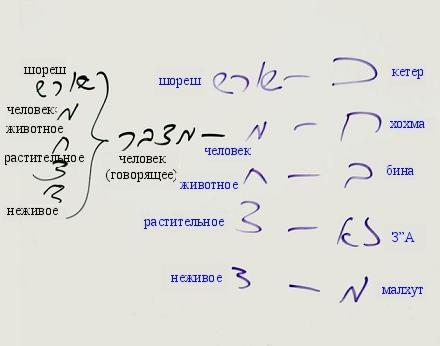 шореш שורש — כ кетер
человек מ — ח хохма
животное ח — ב бина
растительное צ — ז"א З"А
неживое ד — מ малхут
מדבר —
человек
(говорящее)
шореш
שורש
человек מ
животное
ח
растительное
צ
ד
неживое